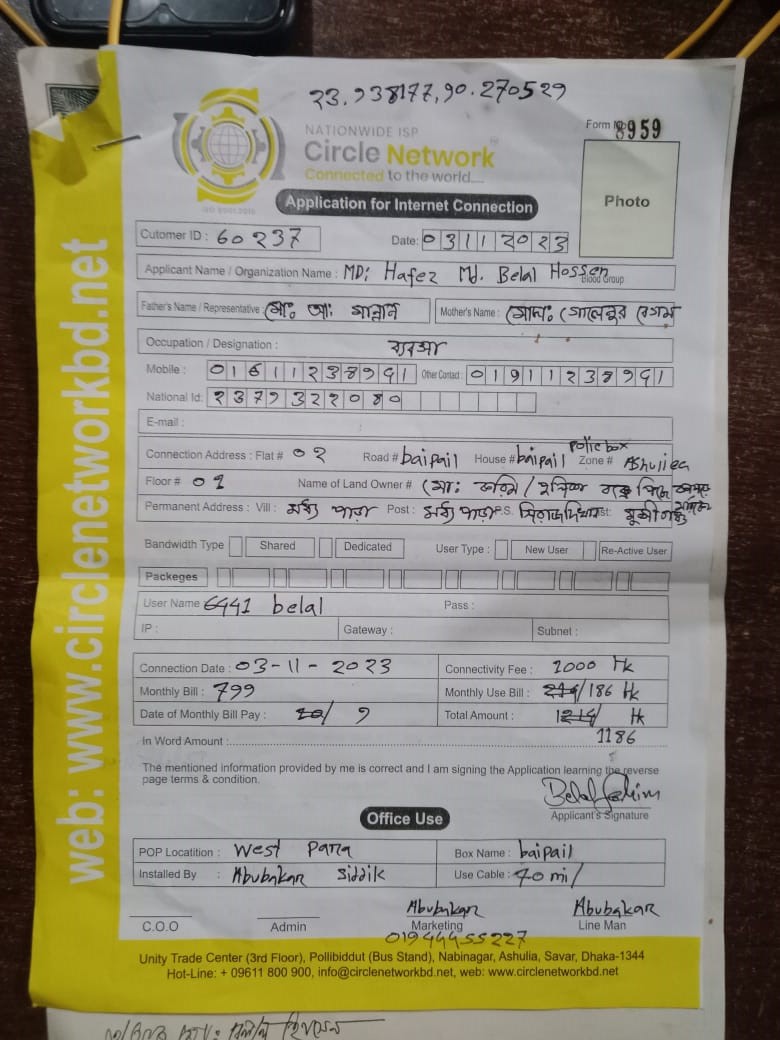 23.938177,90.270529
NATIONWIDE ISP
Form No 8959
Circle Network
Connected to the world....
ISO 9001:2015
Photo
Application for Internet Connection
Cutomer ID : 60237 Date: 03112023
Applicant Name / Organization Name : MD: Hafez Md. Belal Hossen Blood Group
Father's Name / Representative : মো: আ: মান্নান Mother's Name : মোসা:
Occupation / Designation : ব্যবসা
Mobile : Other Contact :
National Id: 2379322080
E-mail :
Connection Address : Flat # 02 Road # baipail House # baipail police box Zone # Ashuliea
Floor # 01 Name of Land Owner # মো:
Permanent Address : Vill : মধ্য পাড়া Post : মধ্য পাড়া P.S. সিরাজদিখান Dist: মুন্সীগঞ্জ
Bandwidth Type Shared Dedicated User Type : New User Re-Active User
Packeges
User Name 6441 belal Pass :
IP : Gateway : Subnet :
Connection Date : 03-11-2023 Connectivity Fee : 1000 tk
Monthly Bill : 799 Monthly Use Bill : 186 tk
Date of Monthly Bill Pay : 10/ 9 Total Amount : tk
1186
In Word Amount :
The mentioned information provided by me is correct and I am signing the Application learning the reverse
page terms & condition.
Applicant's Signature
Office Use
POP Locatition : West Para Box Name : baipail
Installed By : Abubakar Siddik Use Cable : 40 mi/
Abubakar Abubakar
C.O.O Admin Marketing Line Man
01944455227
Unity Trade Center (3rd Floor), Pollibiddut (Bus Stand), Nabinagar, Ashulia, Savar, Dhaka-1344
Hot-Line: + 09611 800 900, info@circlenetworkbd.net, web: www.circlenetworkbd.net
web: www.circlenetworkbd.net